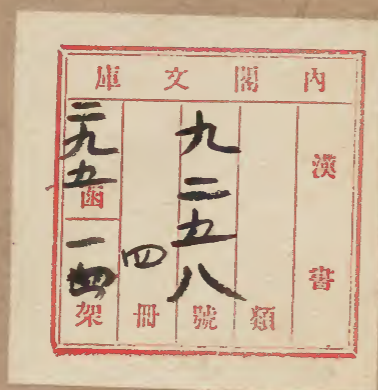 內閣文庫
漢書
類
九二五八號
四冊
二九五函
一四架